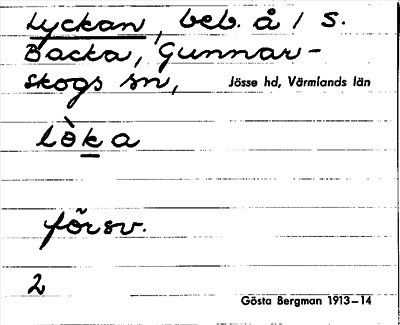 Lyckan, beb. å 1 S.
Backa, Gunnar-
skogs sn,
Jösse hd, Värmlands län
lə̀ka
försv.
2
Gösta Bergman 1913–14